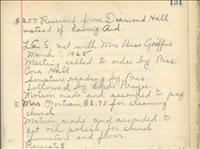 131
$2.00 Received from Diamond Hall
instead of having Aid
L.A.S. met with Mrs Bess Griffis
March 1928
Meeting called to order by Pres.
Ora Hall
Scripture reading by Pres.
followed by Lord's Prayer.
Motion made and seconded to pay
Mrs $2.75 for cleaning
church
Motion made and seconded to
get oil polish for church
furniture and floor